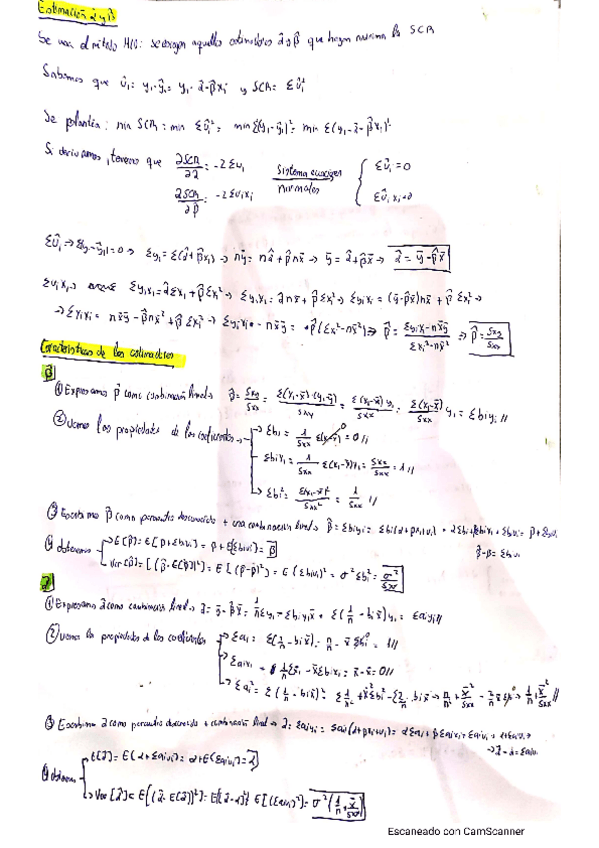 Estimación α̂ y β̂
Se usa el método MCO: se escogen aquellos estimadores α̂ y β̂ que hagan mínima la SCR
Sabemos que ûᵢ = yᵢ - ŷᵢ = yᵢ - α̂ - β̂xᵢ y SCR = Σûᵢ²
Se plantea: min SCR = min Σûᵢ² = min Σ(yᵢ - ŷᵢ)² = min Σ(yᵢ - α̂ - β̂xᵢ)²
Si derivamos, tenemos que ∂SCR/∂α̂ = -2Σuᵢ Sistema ecuaciones normales Σûᵢ = 0
∂SCR/∂β̂ = -2Σuᵢxᵢ Σûᵢxᵢ = 0
Σûᵢ → Σ(yᵢ - ŷᵢ) = 0 → Σyᵢ = Σ(α̂ + β̂xᵢ) → nȳ = nα̂ + β̂nx̄ → ȳ = α̂ + β̂x̄ → α̂ = ȳ - β̂x̄
Σyᵢxᵢ = α̂Σxᵢ + β̂Σxᵢ² → Σyᵢxᵢ = α̂nx̄ + β̂Σxᵢ² → Σyᵢxᵢ = (ȳ - β̂x̄)nx̄ + β̂Σxᵢ² →
→ Σyᵢxᵢ = nx̄ȳ - β̂nx̄² + β̂Σxᵢ² → Σyᵢxᵢ - nx̄ȳ = β̂(Σxᵢ² - nx̄²) → β̂ = (Σyᵢxᵢ - nx̄ȳ)/(Σxᵢ² - nx̄²) → β̂ = Sxy/Sxx
Características de los estimadores
β̂
① Expresamos β̂ como combinación lineal → = Σbᵢyᵢ //
② Vemos las propiedades de los coeficientes → Σbᵢ = = 0 //
Σbᵢxᵢ = 1/Sxx Σ(xᵢ - x̄)xᵢ = Sxx/Sxx = 1 //
Σbᵢ² = Σ(xᵢ - x̄)²/Sxx² = 1/Sxx //
③ Escribimos β̂ como parámetro desconocido + una combinación lineal → β̂ = Σbᵢyᵢ = Σbᵢ(α + βxᵢ + uᵢ) =
β̂ - β = Σbᵢuᵢ
④ obtenemos E[β̂] = E[β + Σbᵢuᵢ] = β + E[Σbᵢuᵢ] = β
Var[β̂] = = E(Σbᵢuᵢ)² = σ²Σbᵢ² = σ²/Sxx
α̂
① Expresamos α̂ como combinación lineal → α̂ = ȳ - β̂x̄ = = Σ(1/n - bᵢx̄)yᵢ = Σaᵢyᵢ //
② Vemos las propiedades de los coeficientes → Σaᵢ = Σ(1/n - bᵢx̄) = n/n - x̄Σbᵢ = 1 //
Σaᵢxᵢ = = x̄ - x̄ = 0 //
Σaᵢ² = Σ(1/n - bᵢx̄)² =
③ Escribimos α̂ como parámetro desconocido + combinación lineal → α̂ = Σaᵢyᵢ = Σaᵢ(α + βxᵢ + uᵢ) =
→ α̂ - α = Σaᵢuᵢ
④ obtenemos E[α̂] = E(α + Σaᵢuᵢ) = α + E(Σaᵢuᵢ) = α
Var[α̂] = E[(α̂ - E(α̂))²] = E[(α̂ - α)²] = E[(Σaᵢuᵢ)²] = σ²(1/n + x̄²/Sxx)
Escaneado con CamScanner